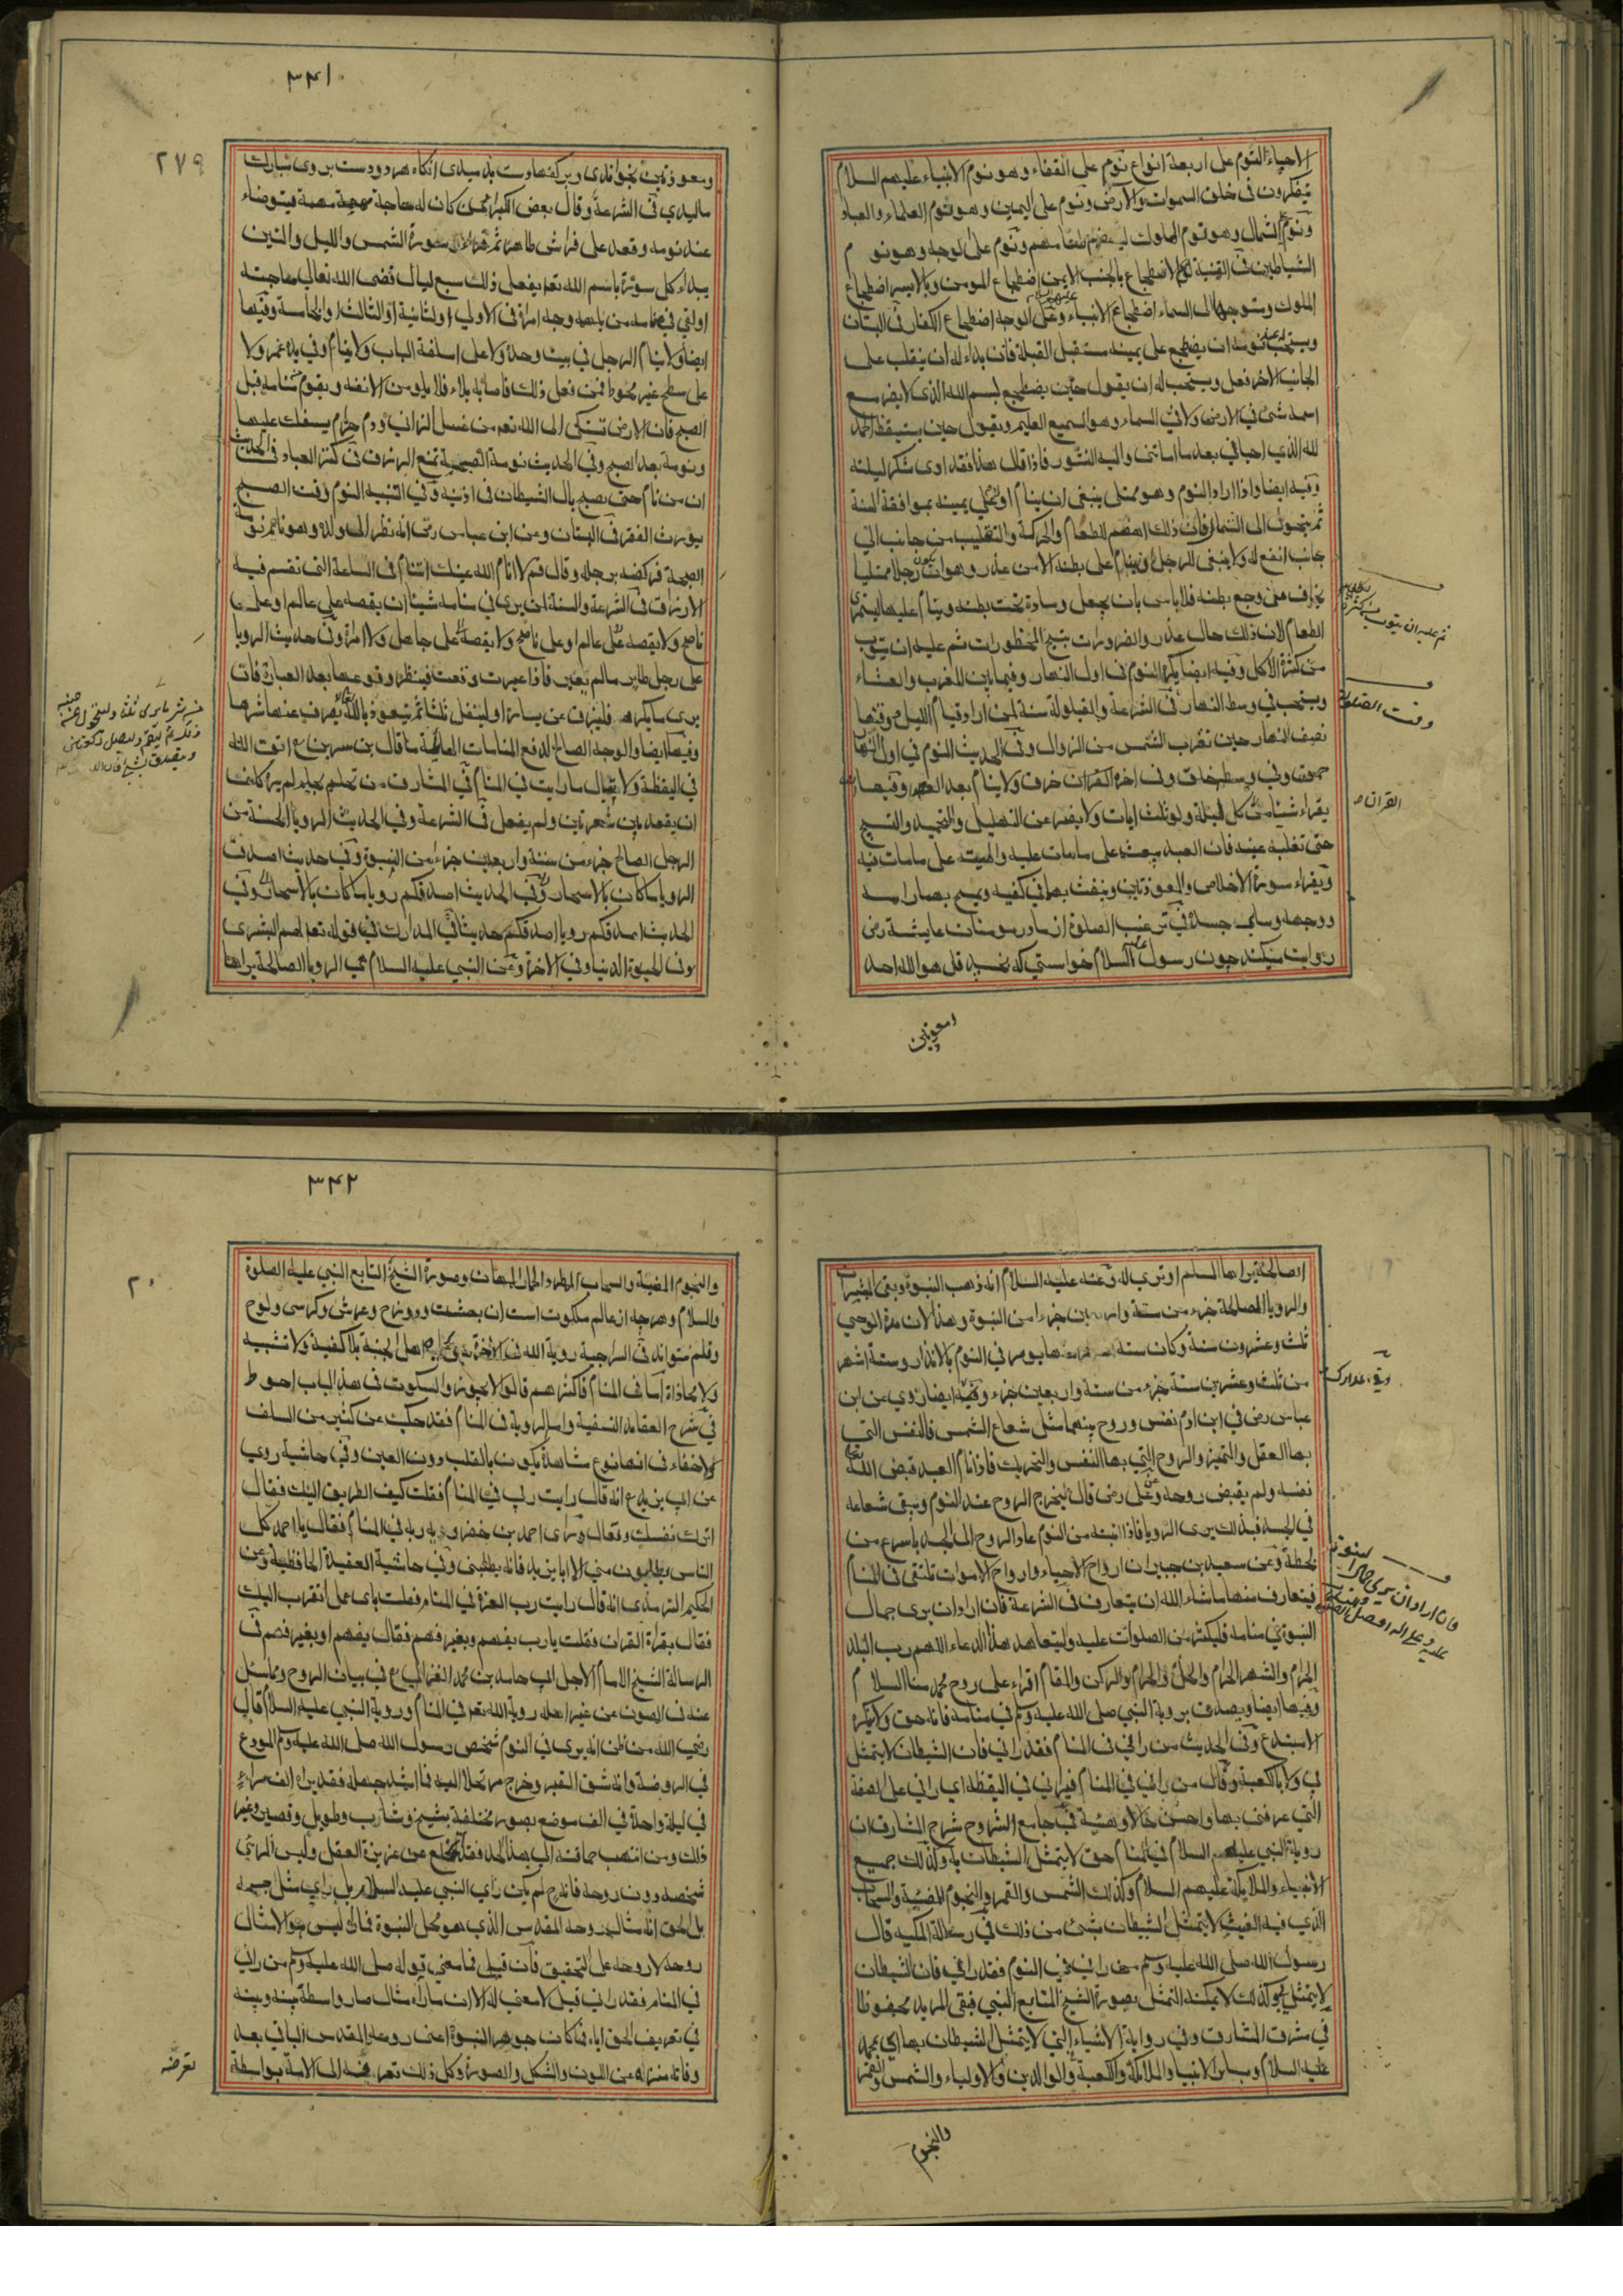 الاحياء النوم على اربعة انواع نوم على القفاء وهو نوم الانبياء عليهم السلام
يتفكرون فى خلق السموات والارض ونوم على اليمين وهو نوم العلماء والعباد
ونوم على الشمال وهو نوم الملوك ليهضم طعامهم ونوم على الوجه وهو نوم
الشياطين فى القنية الاضطجاع بالجنب الايمن اضطجاع المومن وبالايسر اضطجاع
الملوك ومتوجها الى السماء اضطجاع الانبياء عليهم السلام وعلى الوجه اضطجاع الكفار فى البستان
ويستحب عند نومه ان يضطجع على يمينه مستقبل القبلة فان بداء له ان ينقلب على
الجانب الاخر فعل ويستحب له ان يقول حين يضطجع بسم الله الذى لا يضر مع
اسمه شئ فى الارض ولا فى السماء وهو السميع العليم ويقول حين يستيقظ الحمد
لله الذي احياني بعد ما اماتنى واليه النشور فاذا قال هذا فقد ادى شكر ليلته
وفيه ايضا واذا اراد النوم وهو ممتلى ينبغى ان ينام اولا على يمينه بموافقة السنة
ثم يتحول الى الشمال فان ذلك اهضم للطعام والحركة والتقليب من جانب الي
جانب انفع له ولا ينبغى للرجل ان ينام على بطنه الا من عذر وهو ان يكون رجلا ممتليا
يخاف من وجع بطنه فلا باس بان يجعل وسادة تحت بطنه وينام عليها
الطعام لان ذلك حال عذر والضرورات تبيح المحظورات ثم عليه ان يتوب
من كثرة الاكل وفيه ايضا يكره النوم فى اول النهار وفيما بين المغرب والعشاء
ويستحب في وسط النهار فى الشرعة والقيلولة سنة لمن اراد قيام الليل وقتها
نصف النهار حين تقرب الشمس من الزوال وفى الحديث النوم في اول النهار
حمق وفي وسطه خلق وفى اخره خرق ولا ينام بعد العصر وفيها
يقراء شيئا من كل ليلة ولو ثلث ايات ولا يفتر عن التهليل والتحميد والتسبيح
حتى تغلبه عينه فان العبد يبعث على ما مات عليه والميت على ما مات فيه
ويقراء سورة الاخلاص والمعوذتين وينفث بهما في كفيه ويمسح بهما راسه
ووجهه وسائر جسده فى ترغيب الصلوة از مادر مومنان عايشة رض
روايت ميكند چون رسول عليه السلام خواستي كه بخسبد قل هو الله احد
ومعوذتين
القران ص
وقت الصلوة
٣٤١
٢٧٩
ومعوذتين بخواندى وبر كفها دست بدميدى انكاه هر دو دست بر وى مبارك
ماليدي فى الشرعة وقال بعض الكبراء من كان له حاجة مهمة فيتوضاء
عند نومه وقعد على فراش طاهر ثم قراء سورة الشمس والليل والتين
يبداء كل سورة باسم الله تعم يفعل ذلك سبع ليال قضى الله تعالى حاجته
اولتي في منامه من يلهمه وجه امره فى الاولي او الثانية او الثالثة او الخامسة وفيها
ايضا ولا ينام الرجل في بيت وحده ولا على اسكفة الباب ولا ينام وفي يده غمر ولا
على سطح غير محوط فمن فعل ذلك فاصابه بلاء فلا يلومن الا نفسه ويقوم من منامه قبل
الصبح فان الارض تشتكى الى الله تعم من غسل الزاني ودم حرام يسفك عليها
ونومة بعد الصبح وفي الحديث نومة الصبحية تمنع الرزق فى كنز العباد فى الحديث
ان من نام حتى يصبح بال الشيطان فى اذنيه وفي التنبيه النوم وقت الصبح
يورث الفقر فى البستان وعن ابن عباس رض انه نظر الى ولده وهو نائم نومة
الصبحة فركضه برجله وقال قم لا انام الله عينك اتنام فى الساعة التى تقسم فيه
الارزاق فى الشرعة والسنة لمن يرى في منامه شيئا ان يقصه على عالم او على
ناصح ولا يقصه على عالم او على ناصح ولا يقصه على جاهل ولا امراة وفى حديث الرويا
على رجل طاير ما لم يعبر فاذا عبرت وقعت فينظر وقوعها بعد العبارة فان
يرى ما يكرهه فلينزق عن يساره او ليتفل ثلثا ثم يتعوذ بالله تعالى يصرف عنه شرها
وفيها ايضا والوجه الصالح لدفع المنامات الهائلة ما قال بن سيرين ع اتق الله
في اليقظة ولا تبال ما رايت في المنام في المشارق من تحلم بحلم لم يره كلف
ان يقعد بين شعرتين ولم يفعل فى الشرعة وفي الحديث الرويا الحسنة من
الرجل الصالح جزء من ستة واربعين جزء من النبوة وفي حديث اصدق
الرويا ما كان بالاسحار وفي الحديث اصدقكم رويا ما كان بالاسحار وفي
الحديث اصدقكم رويا اصدقكم حديثا في المدارك في قوله تعم لهم البشرى
فى الحيوة الدنيا وفى الاخرة وعن النبي عليه السلام هي الرويا الصالحة يراها
الصالحة يراها المسلم او تري له وعنه عليه السلام انه ذهب النبوة وبقى المبشرات
والرويا الصالحة جزء من ستة واربعين جزءا من النبوة وهذا لان مدة الوحي
ثلث وعشرون سنة وكان ستة اشهر منها يومر في النوم بالانذار وستة اشهر
من ثلث وعشرين سنة جزء من ستة واربعين جزء وفيه ايضا روي عن ابن
عباس رض في ابن ادم نفس وروح بينهما مثل شعاع الشمس فالنفس التي
بها العقل والتميز والروح التي بها النفس والتحريك فاذا نام العبد قبض الله تعالى
نفسه ولم يقبض روحه وعن على رض قال يخرج الروح عند النوم ويبقى شعاعه
في الجسد فبذلك يرى الرويا فاذا انتبه من النوم عاد الروح الى الجسد باسرع من
لحظة وعن سعيد بن جبير ان ارواح الاحياء وارواح الاموات تلتقى فى المنام
فيتعارف منها ما شاء الله ان يتعارف فى الشرعة فان اراد ان يرى جمال
النبوة في منامه فليكثر من الصلوات عليه وليتعاهد هذا الدعاء اللهم رب البلد
الحرام والشهر الحرام والحل والحرام والركن والمقام اقراء على روح محمد منا السلام
وفيها ايضا ويصدق بروية النبي صلى الله عليه وسلم في منامه فانه حق ولا ينكره
الا مبتدع وفى الحديث من راني فى المنام فقد راني فان الشيطان لا يتمثل
بي ولا بالكعبة وقال من راني في المنام فيراني في اليقظة اي راني على الصفة
التي عرفنى بها واحسن حالا وهيئة فى جامع الشروح شرح المشارق ان
روية النبي عليه السلام في المنام حق لا يتمثل الشيطان به وكذلك جميع
الانبياء والملايكة عليهم السلام وكذلك الشمس والقمر والنجوم المضيئة والسحاب
الذي فيه الغيث لا يتمثل الشيطان بشئ من ذلك في رسالة المكيه قال
رسول الله صلى الله عليه وسلم من راني في النوم فقد راني فان الشيطان
لا يتمثل بي وكذلك لا يمكنه التمثل بصورة الشيخ المتابع النبي فبقى المريد محفوظا
في شرق المشارق وفي رواية الاشياء التي لا يتمثل الشيطان بها اي محمد
عليه السلام وساير الانبيا والملائكة والكعبة والوالدين والاولياء والشمس والقمر
والنجوم
٣٤٢
والنجوم المضية والسحاب الممطر وصورة الشيخ التابع النبي عليه الصلوة
والسلام وهرچه از عالم ملكوت است ان بهشت ودوزخ وعرش وكرسى ولوح
وقلم نتواند فى السراجية روية الله فى الاخرة يرى اهل الجنة بلا كيفية ولا تشبيه
ولا محاذاة اما فى المنام فاكثرهم قالوا لا يجوز والسكوت فى هذا الباب احوط
في شرح العقايد النسفية واما الروية فى المنام فقد حكيت عن كثير من السلف
ولا خفاء فى انها نوع مشاهدة يكون بالقلب دون العين وفي حاشية روي
عن ابي يزيد ع انه قال رايت ربي في المنام فقلت كيف الطريق اليك فقال
اترك نفسك وتعال وراى احمد بن خضرويه ربه في المنام فقال يا احمد كل
الناس يطلبون مني الا ابا يزيد فانه يطلبنى وفي حاشية العقيدة الحافظية وعن
الحكيم الترمذى انه قال رايت رب العزة في المنام فقلت باى عمل اتقرب اليك
فقال بقراءة القران فقلت يا رب بفهم وبغير فهم فقال بفهم او بغير فهم فى
الرسالة الشيخ الامام الاجل ابي حامد بن محمد الغزالي ع في بيان الروح وما سئل
عنه فى المصون عن غير اهله روية الله تعم في المنام وروية النبي عليه السلام قال
رضي الله من ظن انه يرى في النوم شخص رسول الله صلى الله عليه وسلم المودع
في الروضة وانه شق القبر وخرج مرتحلا اليه فما اشد جهله فقد يراه الف مراءٍ
في ليلة واحدة في الف موضع بصور مختلفة بشيخ وشارب وطويل وقصير وغير
ذلك ومن انتهت حماقته الى هذا الحد فقد انخلع عن غريزة العقل وليس المرئي
شخصه دون روحه فانه لم يكن راي النبي عليه السلام بل راي مثل جسمه
بل الحق انه مثال روحه المقدس الذي هو محل النبوة فماراه ليس هو الا مثال
روحه لا روحه على التحقيق فان قيل فما معنى قوله صلى الله عليه وسلم من راني
في المنام فقد راني قيل لا معنى له الا ان ما راه مثال صار واسطة بينه وبينه
في تعريف الحق اياه فكان جوهر النبوة اعنى روحه المقدس الباقي بعد
وفاته منزه عن اللون والشكل والصورة وكل ذلك تعريفه الى الامة بواسطة